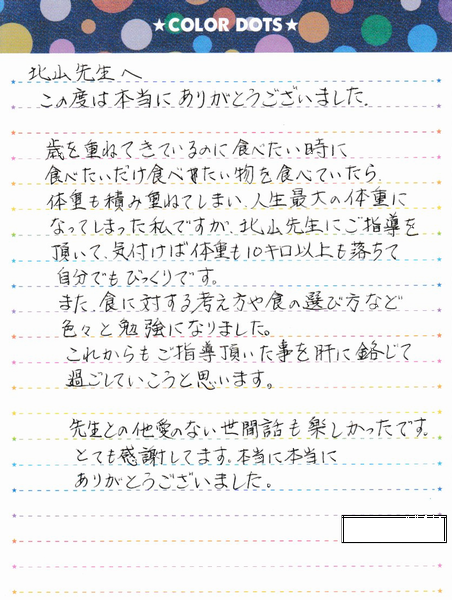 ★COLOR DOTS★
北山先生へ
この度は本当にありがとうございました.
歳を重ねてきているのに食べたい時に
食べたいだけ食べたい物を食べていたら,
体重も積み重ねてしまい、人生最大の体重に
なってしまった私ですが、北山先生にご指導を
頂いて、気付けば体重も10キロ以上も落ちて
自分でもびっくりです。
また、食に対する考え方や食の選び方など
色々と勉強になりました。
これからもご指導頂いた事を肝に銘じて
過ごしていこうと思います。
先生との他愛のない世間話も楽しかったです。
とても感謝してます。本当に本当に
ありがとうございました。